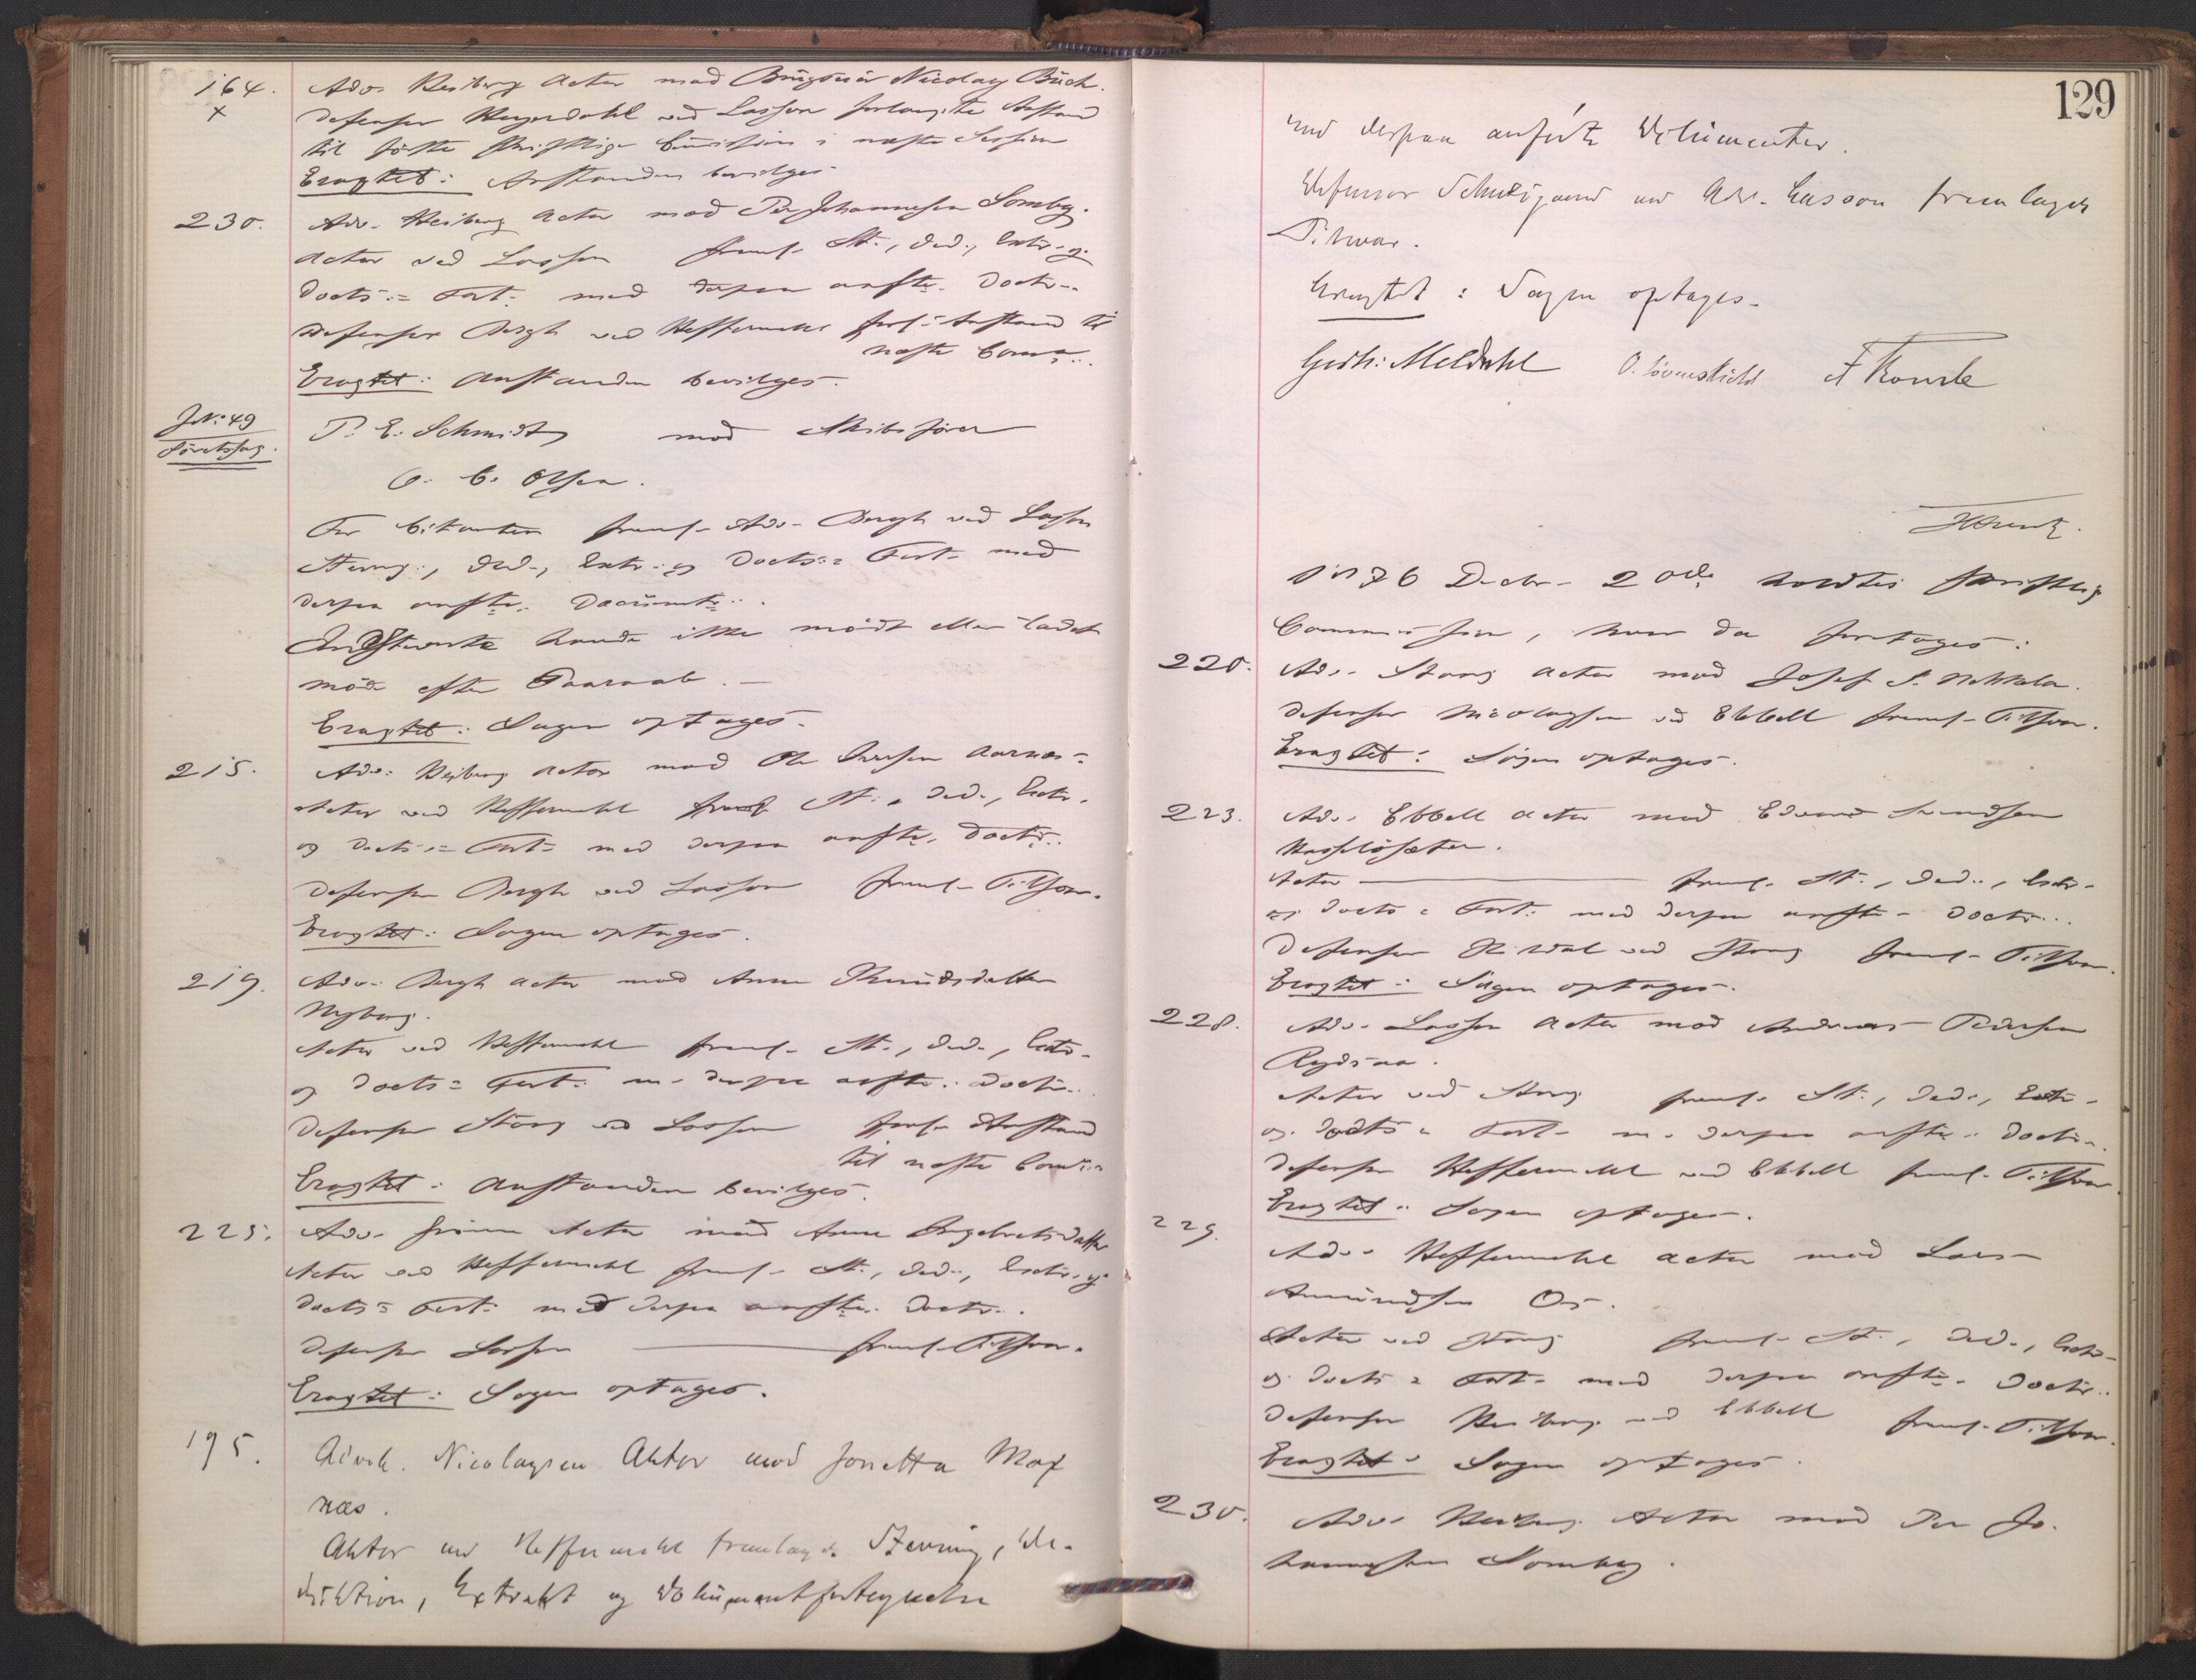 164. Adv. Heiberg Actor mod Brugseier Nicolay Buch.
x Defensor Heyerdahl ved Lasson forlangte Anstand
til første skriftlige Commission i næste Session
Eragtet: Anstanden bevilges
230. Adv. Heiberg Actor mod Per Johannesen Somby.
Actor ved Lasson freml. St., Ded., Extr. og
Docts.= Fort. med derpaa anfte. Doctr.
Defensor Bergh ved Heffermehl forl. Anstand til
næste Comm..
Eragtet: Anstanden bevilges.
J.No. 49
Søretssag.
P. E. Schmidt mod Skibsfører
O. C. Olsen.
For Citanten freml. Adv. Bergh ved Lasson
Stevng., Ded., Extr. og Docts.= Fort. med
derpaa anfte. Documtr..
Indstevnte havde ikke mødt eller ladet
møde efter Paaraab. —
Eragtet: Sagen optages.
215. Adv. Heiberg Actor mod Ole Aarnæs
Actor ved Heffermehl freml. St., Ded., Extr.
og Docts.= Fort. med derpaa anfte. Doctr..
Defensor Bergh ved Lasson freml. Tilsvar.
Eragtet: Sagen optages.
219. Adv. Bergh Actor mod Anne Knudsdatter
Nyborg.
Actor ved Heffermehl freml. St., Ded., Extr.
og Docts.= Fort. m. derpaa anfte. Doctr..
Defensor Stang ved Lasson forl. Anstand
til næste Comm..
Eragtet: Anstanden bevilges.
225. Adv. Actor mod Anne Engebretsdatter
Actor ved Heffermehl freml. St., Ded., Extr. og
Docts.= Fort. med derpaa anfte. Doctr..
Defensor Lasson — freml. Tilsvar.
Eragtet: Sagen optages.
195. Advok. Nicolaysen Aktor mod Jonetta Mox
næs.
Aktor ved Heffermehl fremlagde Stevning, De-
duktion, Extrakt og Dokumentfortegnelse
129
med derpaa anførte Dokumenter.
Defensor Schweigaard ved Adv. Lasson fremlagde
Tilsvar.
Eragtet: Sagen optages.
Gedh: Meldahl O. Løvenskiold
1876 Decbr. 20de holdtes skriftlig
Commission, hvor da foretoges:
220. Adv. Stang Actor mod Josef P. Nokkala.
Defensor Nicolaysen ved Ebbell freml. Tilsvar.
Eragtet: Sagen optages.
223. Adv. Ebbell Actor mod Edvard
Actor — freml. St., Ded., Extr.
og Docts.= Fort. med derpaa anfte. Doctr...
Defensor ved Stang freml. Tilsvar.
Eragtet: Sagen optages.
228. Adv. Lasson Actor mod Andreas Pedersen
Actor ved Stang freml. St., Ded., Extr.
og Docts.= Fort. m. derpaa anfte. Doctr.
Defensor Heffermehl ved Ebbell freml. Tilsvar
Eragtet: Sagen optages.
229.
Adv. Heffermehl Actor mod Lars
Amundsen Os.
Actor ved Stang freml. St., Ded., Extr.
og Docts.= Fort. med derpaa anfte. Doctr..
Defensor Heiberg ved Ebbell freml. Tilsvar.
Eragtet: Sagen optages.
230. Adv. Heiberg Actor mod Per Jo-
hannesen Somby.